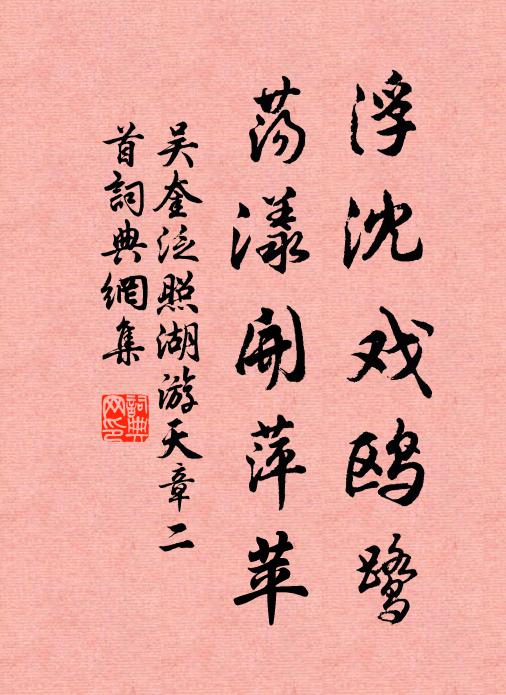 浮沈戏鸥鹭
荡漾开萍苹
吴奎泛照湖游天章二
首詞典網集
詞典网印